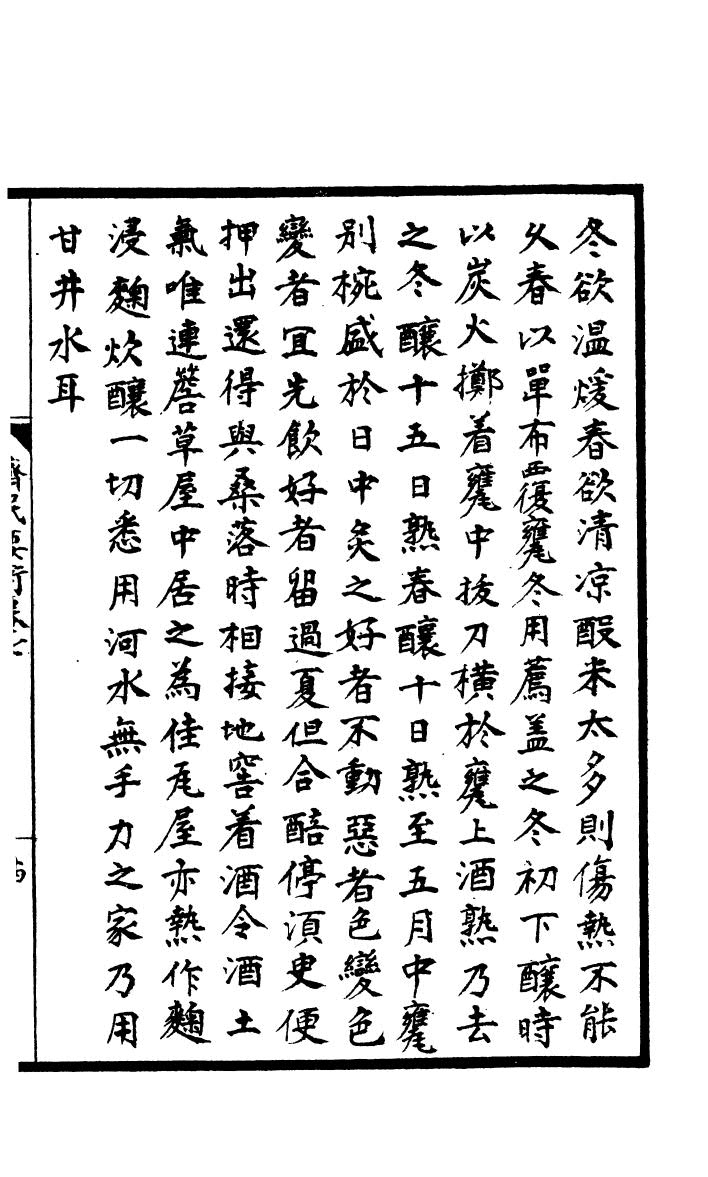 冬欲温煖春欲清凉酘米太多則傷熱不能
久春以單布覆甕冬用薦盖之冬初下釀時
以炭火擲着甕中拔刀橫於甕上酒熟乃去
之冬釀十五日熟春釀十日熟至五月中甕
別椀盛於日中炙之好者不動惡者色變色
變者宜先飲好者留過夏但合醅停湏臾便
押出還得與桑落時相接地窖着酒令酒土
氣唯連簷草屋中居之為佳瓦屋亦熱作麴
浸麴炊釀一切悉用河水無手力之家乃用
甘井水耳
齊民要術卷七